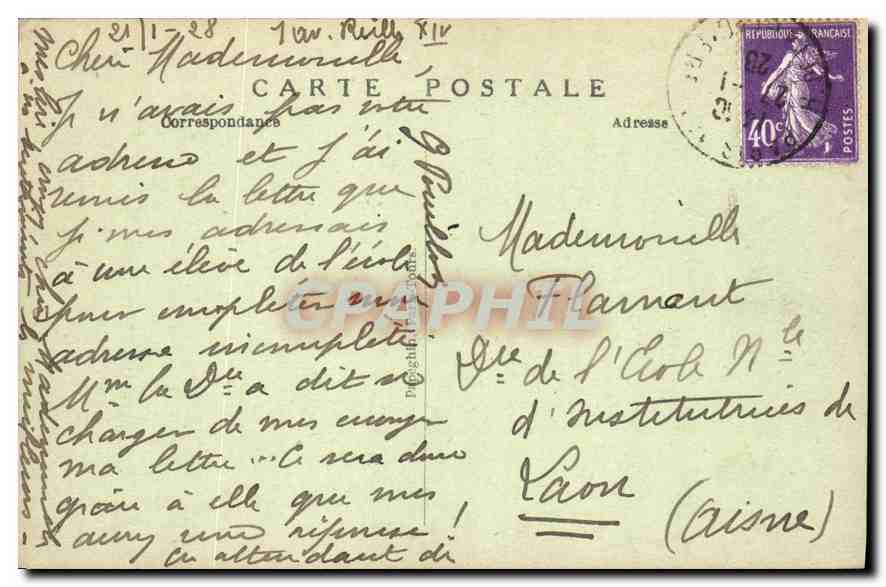 21/1-28 1 av. Reille XIV
Chère Mademoiselle,
CARTE POSTALE
Correspondance
Adresse
Je n'avais pas votre
adresse et j'ai
remis la lettre que
je vous adressais
à une élève de l'école
pour compléter mon
adresse incomplète
Mme la Dce a dit se
charger de vous envoyer
ma lettre... Ce sera donc
grâce à elle que vous
aurez une réponse !
en attendant de
G Pouillot
Mademoiselle
Flamant
Dce de l'Ecole Nle
d'Institutrices de
Laon
(Aisne)
REPUBLIQUE FRANÇAISE
40c
POSTES
CPAPHIL
Tours